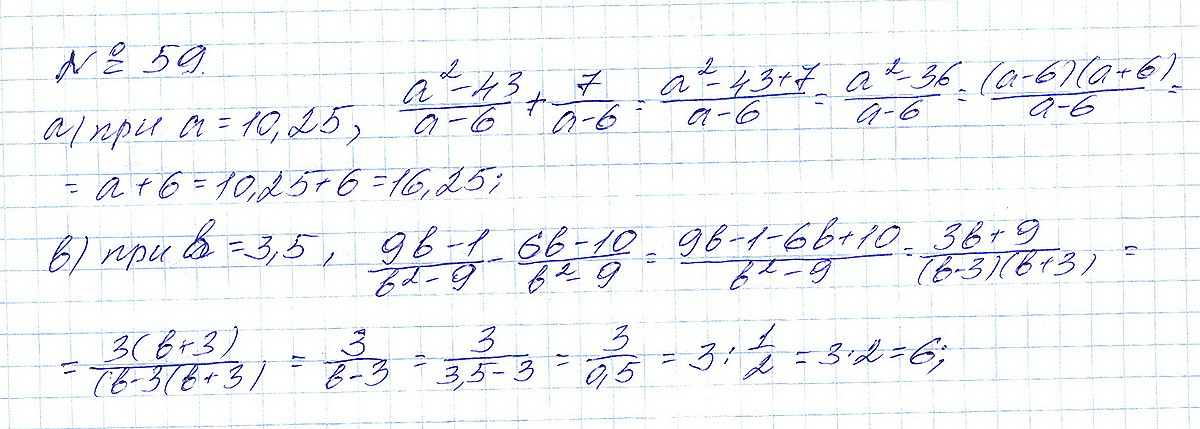 № 59.
а) при a = 10,25, (a² - 43)/(a - 6) + 7/(a - 6) = (a² - 43 + 7)/(a - 6) = (a² - 36)/(a - 6) = ((a - 6)(a + 6))/(a - 6) =
= a + 6 = 10,25 + 6 = 16,25;
в) при b = 3,5, (9b - 1)/(b² - 9) - (6b - 10)/(b² - 9) = (9b - 1 - 6b + 10)/(b² - 9) = (3b + 9)/((b - 3)(b + 3)) =
= (3(b + 3))/((b - 3(b + 3)) = 3/(b - 3) = 3/(3,5 - 3) = 3/0,5 = 3 : 1/2 = 3 · 2 = 6;